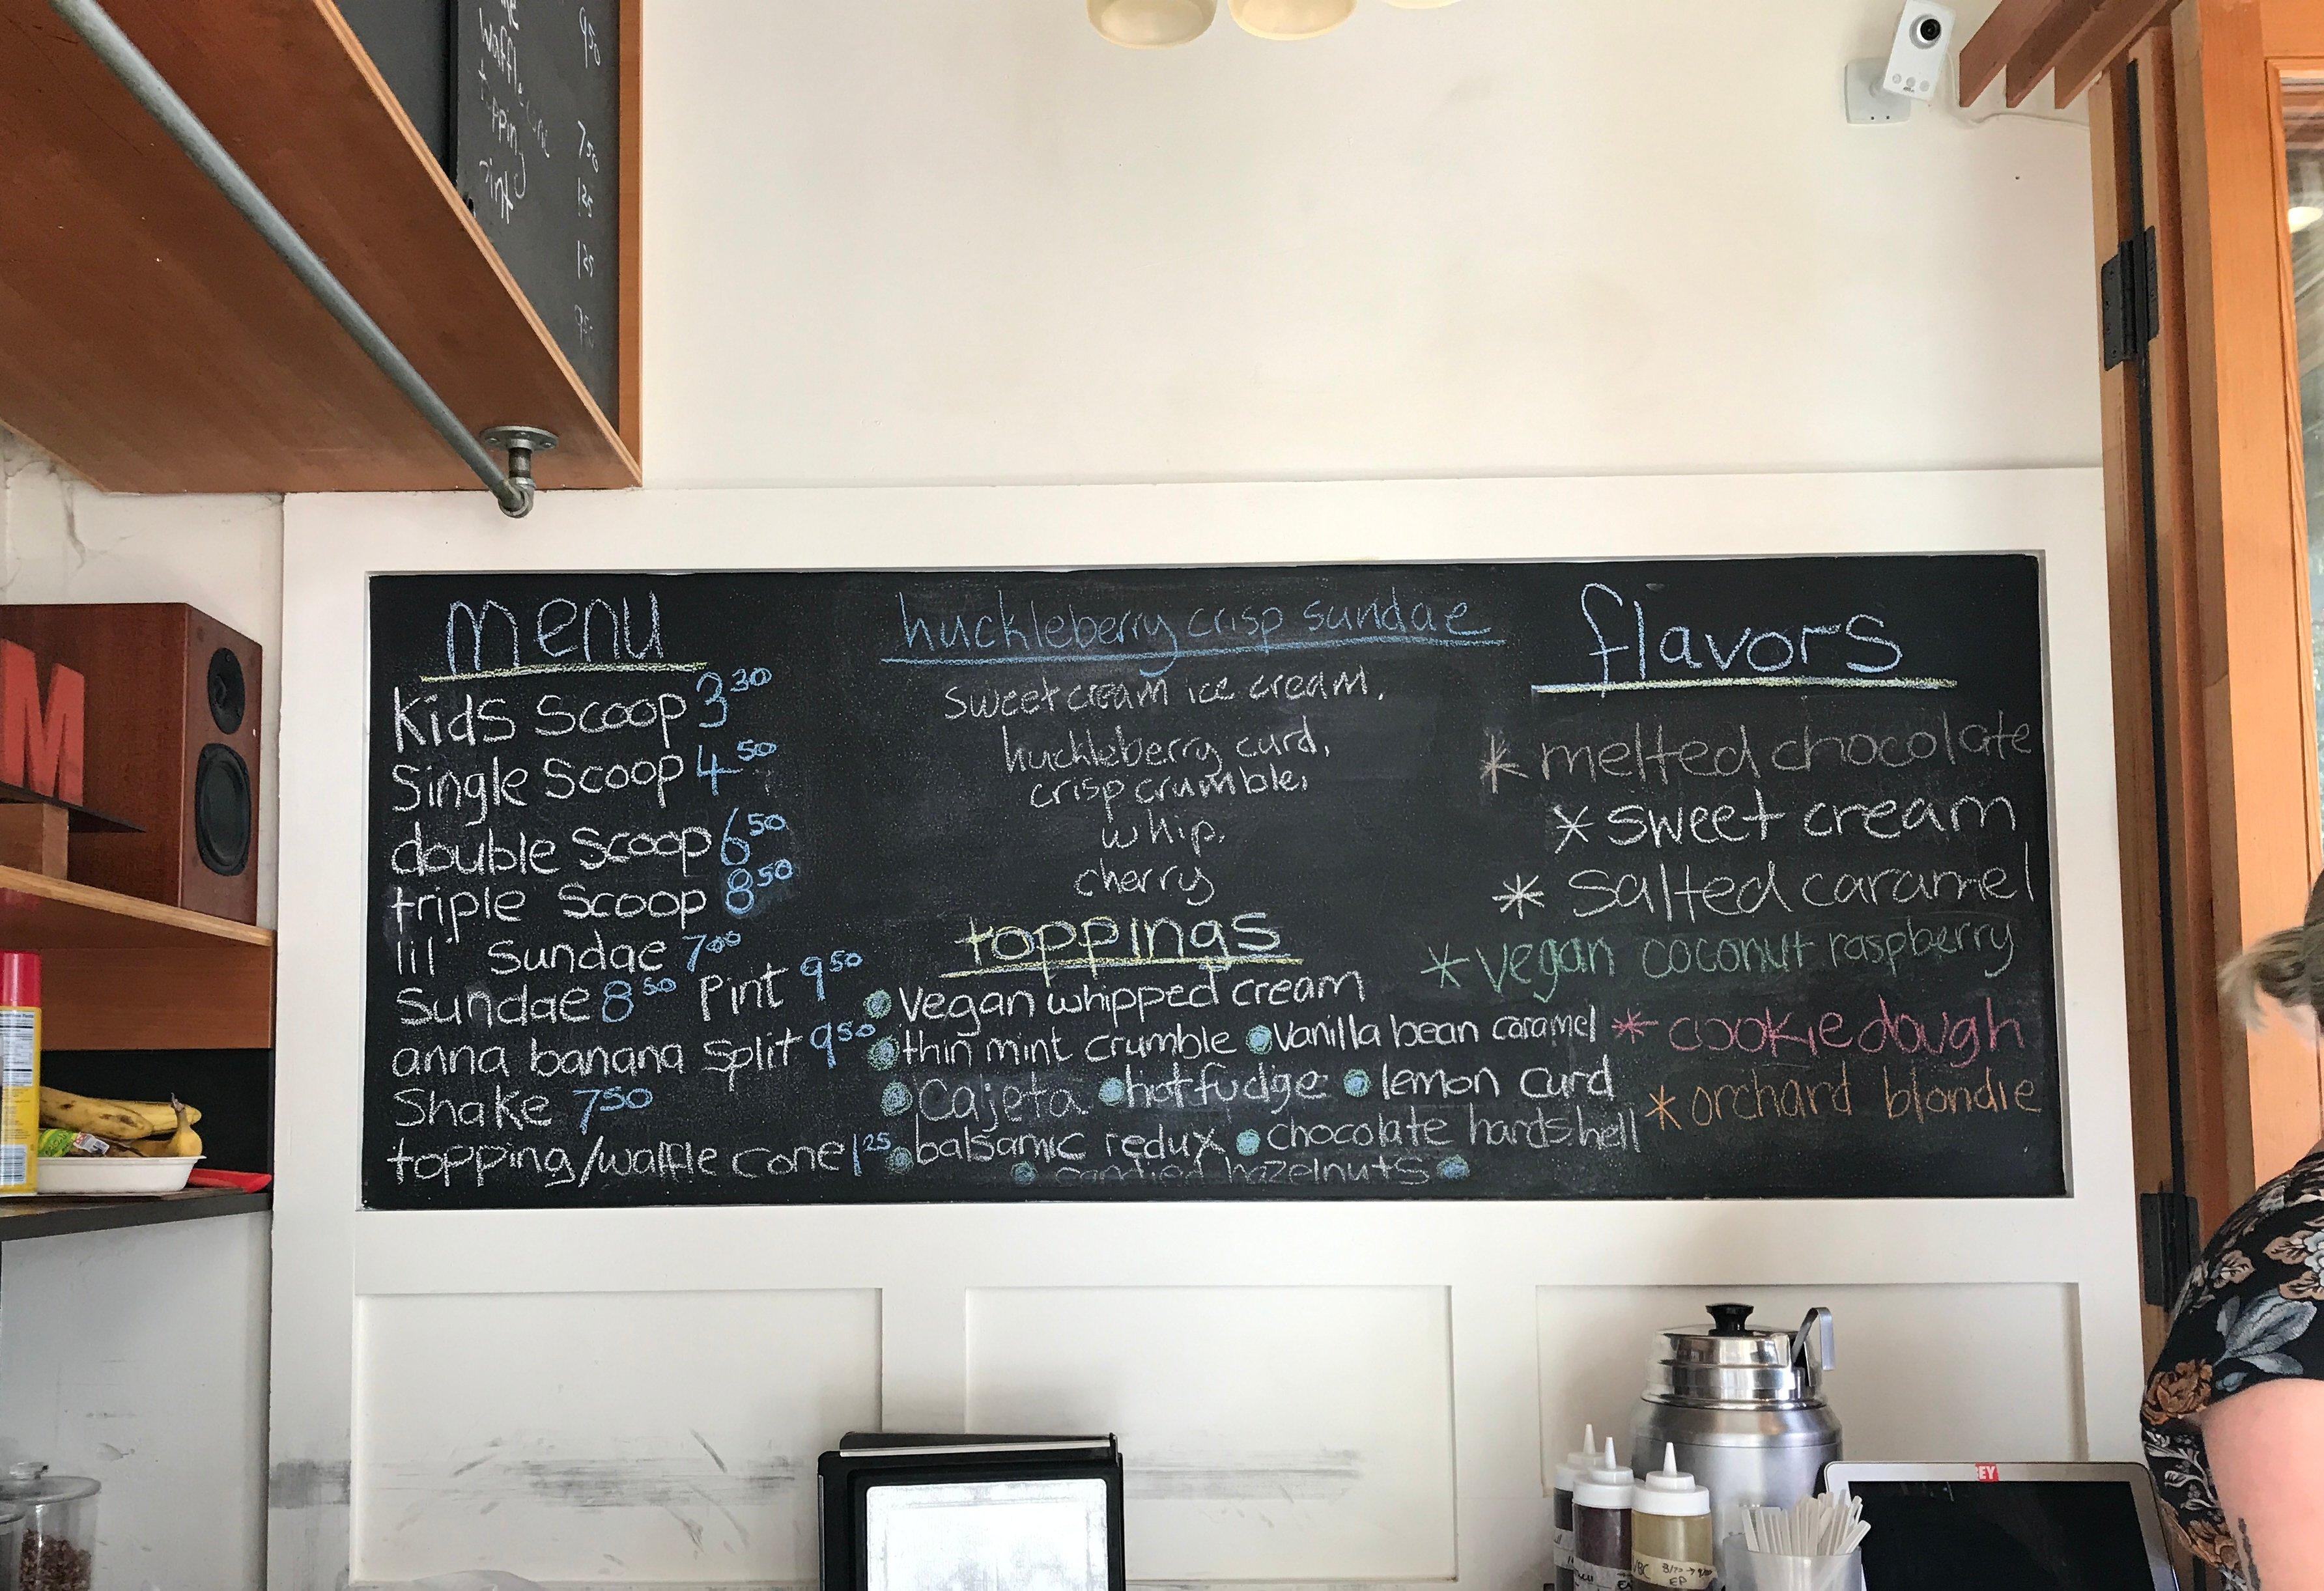 waffle cone 7 50
topping 1 25
9 50
M
menu
Kids Scoop 3 30
Single Scoop 4 50
double Scoop 6 50
triple Scoop 8 50
lil' Sundae 7 00
Sundae 8 50 Pint 9 50
anna banana split 9 50
Shake 7 50
topping/waffle cone 1 25
huckleberry crisp sundae
sweet cream ice cream,
huckleberry curd,
crisp crumble,
whip,
cherry
toppings
Vegan whipped cream
thin mint crumble Vanilla bean caramel
Cajeta hot fudge lemon curd
balsamic redux chocolate hardshell
candied hazelnuts
flavors
* melted chocolate
* sweet cream
* Salted caramel
* vegan coconut raspberry
* cookie dough
* orchard blondie
EY
EP